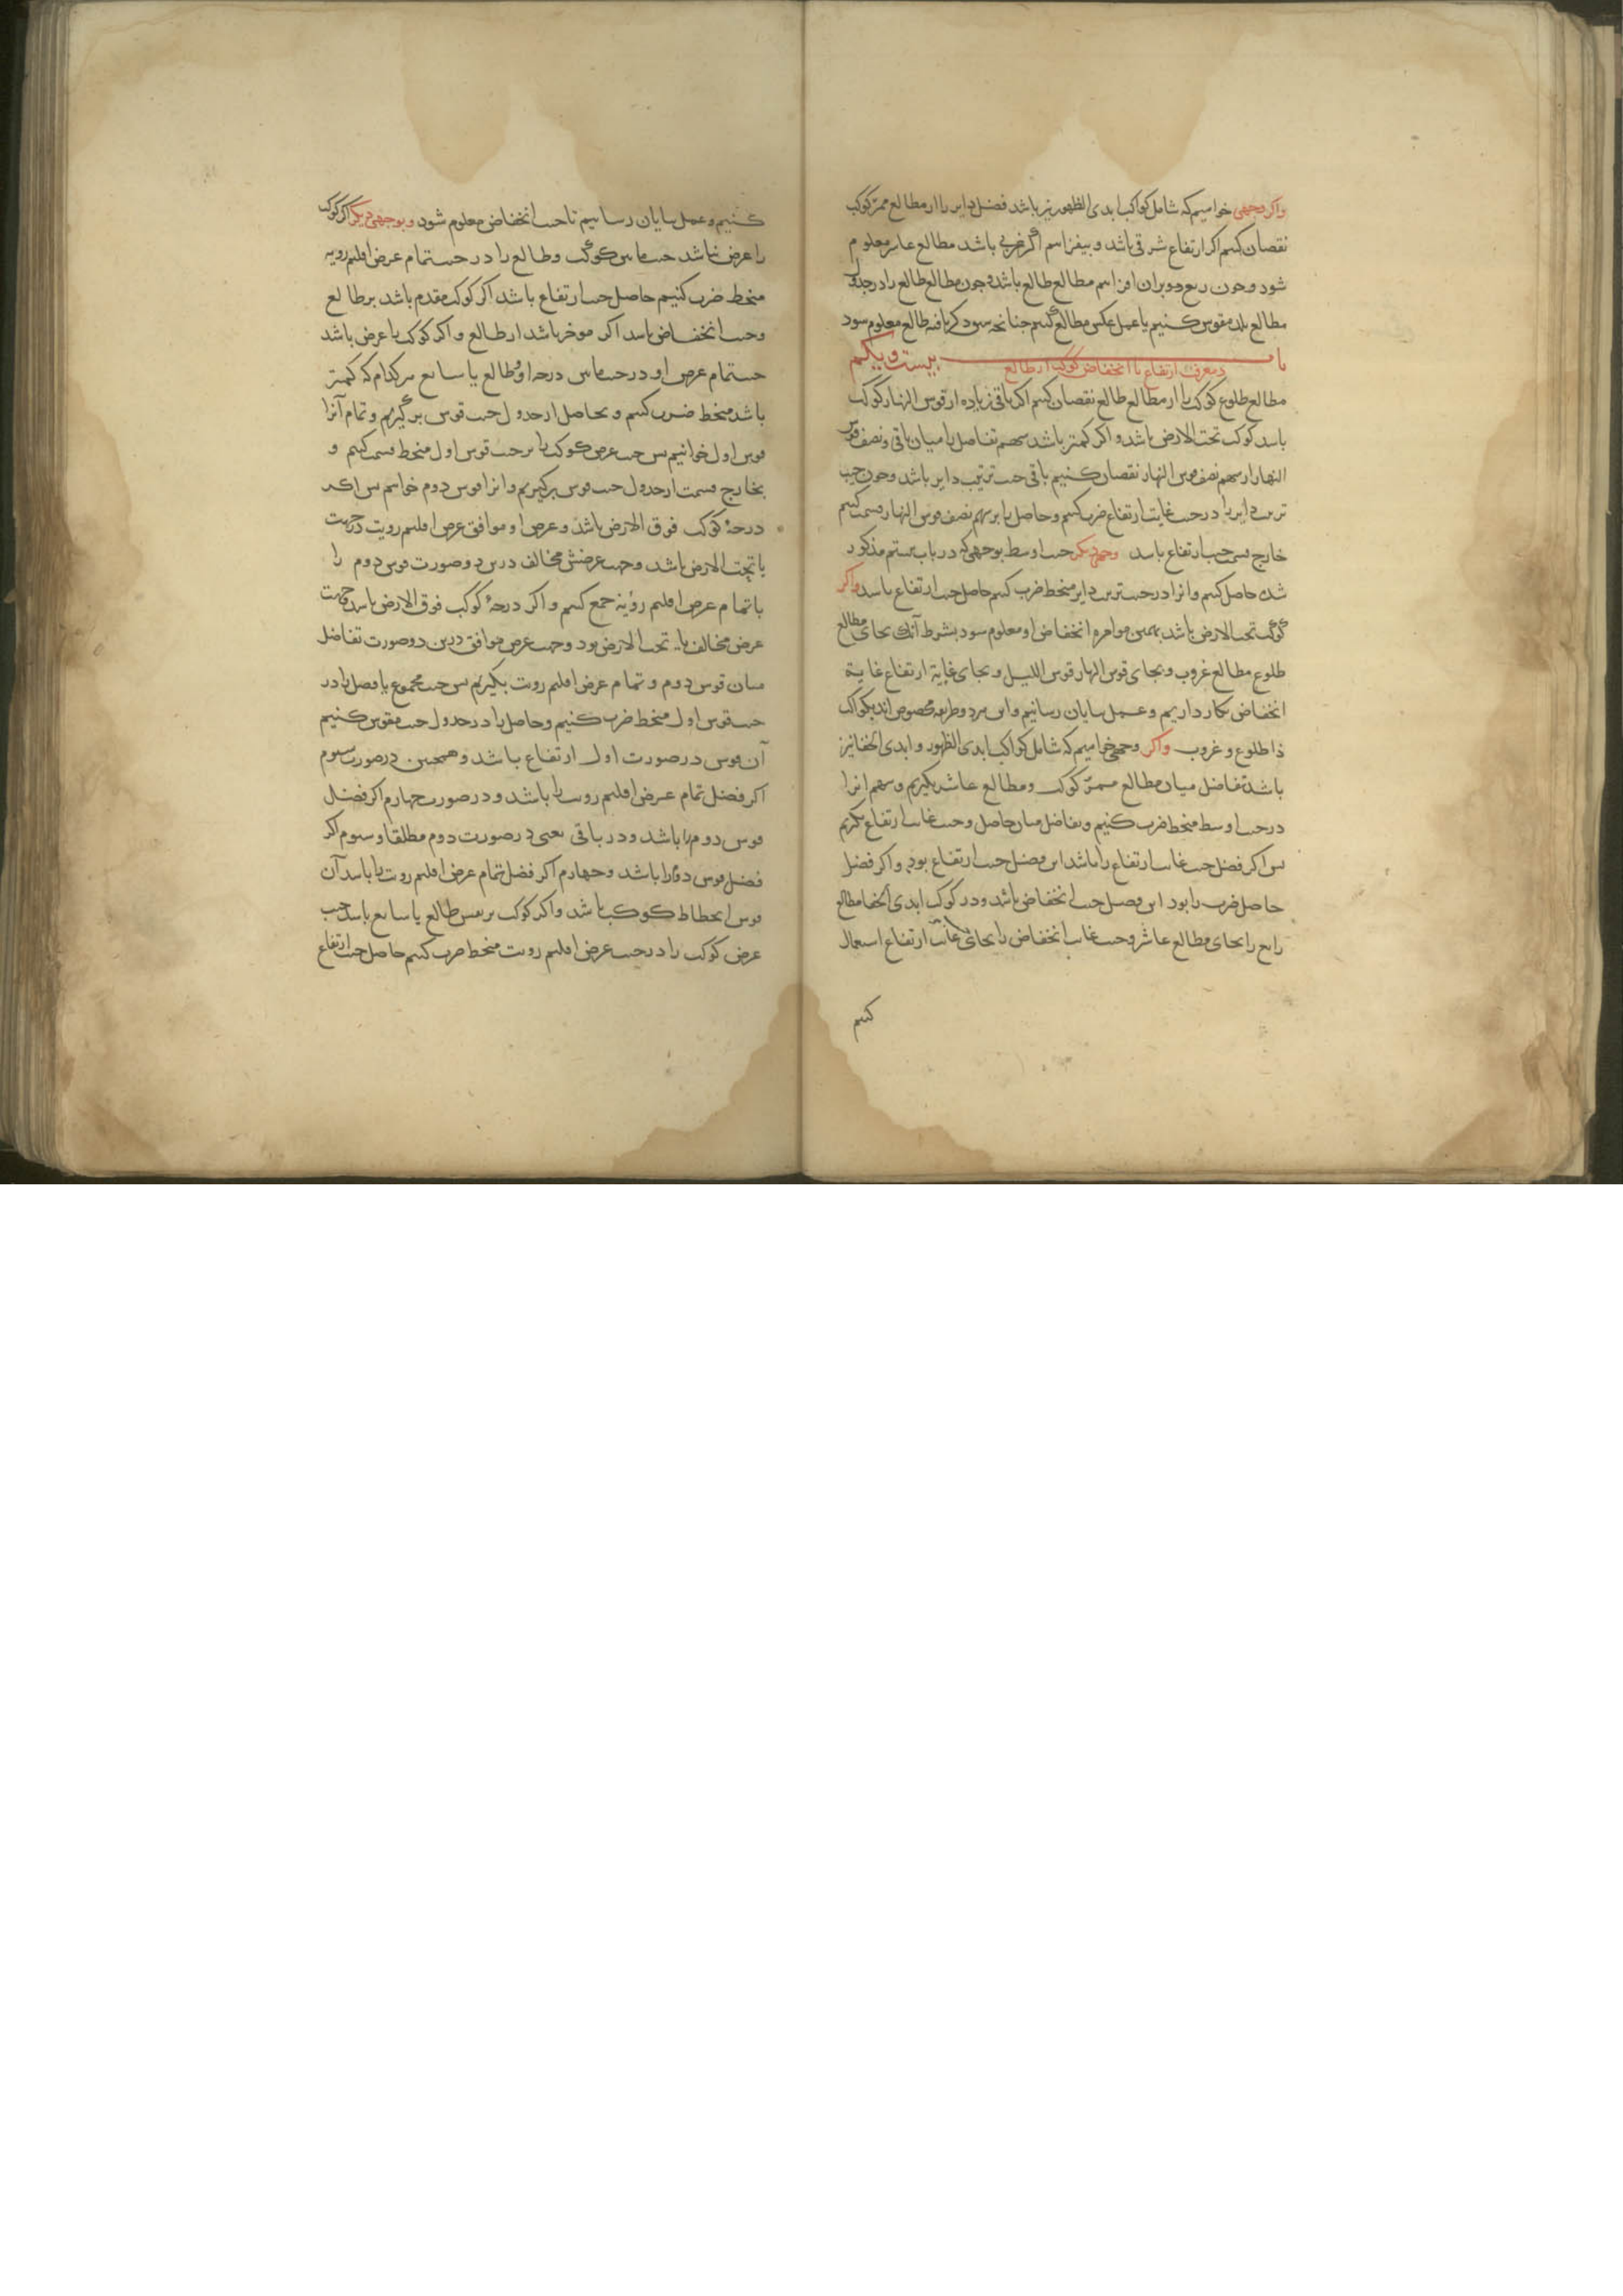 واکر وجهی خواهیم که شامل کواکب ابدی الظهور نیز باشد فضل دایر را از مطالع ممر کوکب
نقصان کنیم اکر ارتفاع شرقی باشد و بیفزاییم اکر غربی باشد مطالع عاشر معلوم
شود و چون ربع دور بران افزاییم مطالع طالع باشد و چون مطالع طالع را در جدول
مطالع بلد مقوس کنیم یا عمل عکس مطالع کنیم چنانچه سود کرمافته طالع معلوم سود
باب بیست و یکم
در معرفت ارتفاع یا انخفاض کوکب از طالع
مطالع طلوع کوکب را از مطالع طالع نقصان کنیم اکر باقی زیاده از قوس النهار کوکب
باشد کوکب تحت الارض باشد و اکر کمتر باشد سهم تفاضل را میان باقی و نصف قوس
النهار از سهم نصف قوس النهار نقصان کنیم باقی جیب ترتیب دایر باشد و چون جیب
ترتیب دایر را در جیب غایت ارتفاع ضرب کنیم و حاصل را بر سهم نصف قوس النهار قسمت کنیم
خارج قسمت جیب ارتفاع باشد وجهی دیکر جیب اوسط بوجهی که در باب بیستم مذکور
شد حاصل کنیم و انرا در جیب ترتیب دایر منحط ضرب کنیم حاصل جیب ارتفاع باشد واکر
کوکب تحت الارض باشد بهمین موامره انخفاض او معلوم سود بشرط آنک بجای مطالع
طلوع مطالع غروب و بجای قوس النهار قوس اللیل و بجای غایة ارتفاع غایة
انخفاض بکار داریم و عمل بپایان رسانیم و این هر دو طریقه مخصوص اند بکواکب
ذا طلوع و غروب واکر وجهی خواهیم که شامل کواکب ابدی الظهور و ابدی الخفا نیز
باشد تفاضل میان مطالع ممر کوکب و مطالع عاشر بکیریم و سهم انرا
در جیب اوسط منحط ضرب کنیم و تفاضل میان حاصل و جیب غایت ارتفاع بکیریم
پس اکر فضل جیب غایت ارتفاع را باشد این فضل جیب ارتفاع بود و اکر فضل
حاصل ضرب را بود این فضل جیب انخفاض باشد و در کوکب ابدی الخفا مطالع
رابع را بجای مطالع عاشر و جیب غایت انخفاض را بجای غایت ارتفاع استعمال
کنیم
کنیم و عمل بپایان رسانیم تا جیب انخفاض معلوم شود و بوجهی دیکر اکر کوکب
را عرض نباشد جیب مابین کوکب و طالع را در جیب تمام عرض اقلیم رویة
منحط ضرب کنیم حاصل جیب ارتفاع باشد اکر کوکب مقدم باشد بر طالع
و جیب انخفاض باشد اکر موخر باشد از طالع و اکر کوکب با عرض باشد
جیب تمام عرض او در جیب مابین درجه او و طالع یا سابع هرکدام که کمتر
باشد منحط ضرب کنیم و بحاصل از جدول جیب قوس برکیریم و تمام آنرا
قوس اول خوانیم پس جیب عرض کوکب را بر جیب قوس اول منحط قسمت کنیم و
بخارج قسمت از جدول جیب قوس برکیریم و انرا قوس دوم خوانیم پس اکر
درجهٔ کوکب فوق الارض باشد و عرض او موافق عرض اقلیم رویت در جهت
یا تحت الارض باشد و جهت عرضش مخالف درین دو صورت قوس دوم را
با تمام عرض اقلیم رؤیة جمع کنیم و اکر درجهٔ کوکب فوق الارض باشد و جهت
عرض مخالف یا تحت الارض بود و جهت عرض موافق درین دو صورت تفاضل
میان قوس دوم و تمام عرض اقلیم رویت بکیریم پس جیب مجموع یا فضل را در
جیب قوس اول منحط ضرب کنیم و حاصل را در جدول جیب مقوس کنیم
آن قوس در صورت اول ارتفاع باشد و همچنین در صورت سوم
اکر فضل تمام عرض اقلیم رویت را باشد و در صورت چهارم اکر فضل
قوس دوم را باشد و در باقی یعنی در صورت دوم مطلقا و سوم اکر
فضل قوس دوم را باشد و چهارم اکر فضل تمام عرض اقلیم رویت را باشد آن
قوس انحطاط کوکب باشد و اکر کوکب بر نفس طالع یا سابع باشد جیب
عرض کوکب را در جیب عرض اقلیم رویت منحط ضرب کنیم حاصل جیب ارتفاع